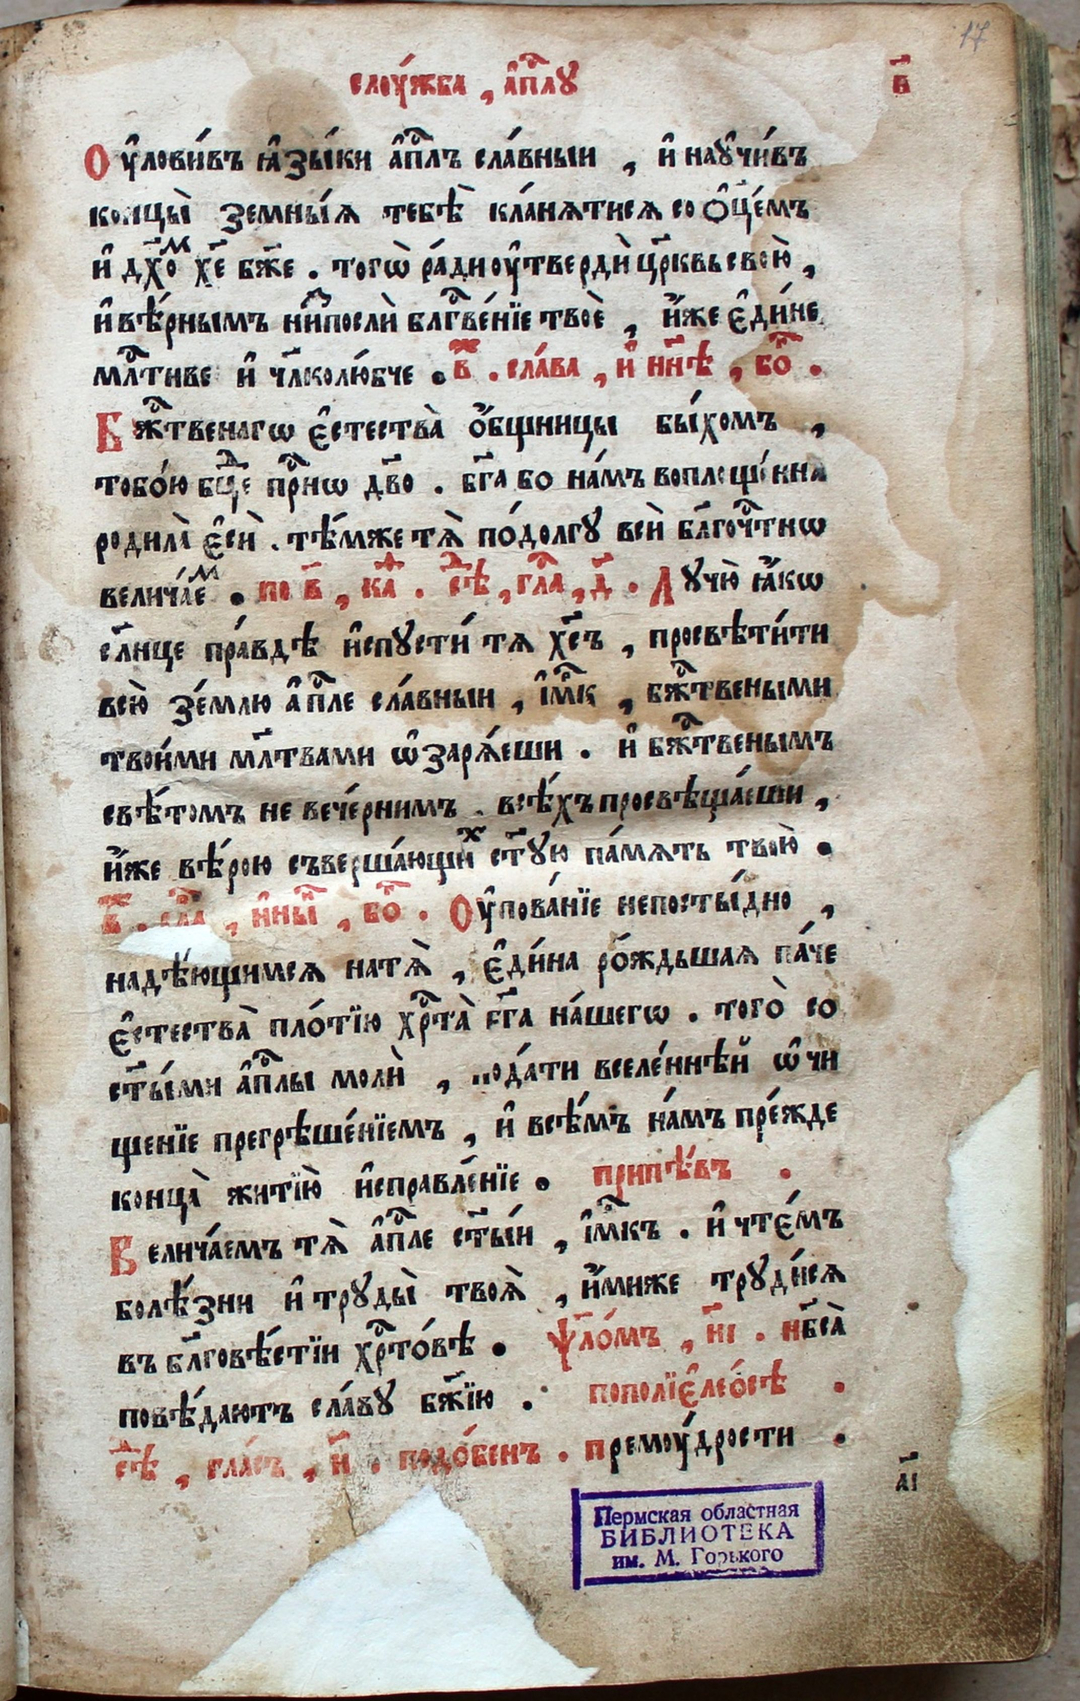 17
слоу́жба , а҆пⷭ҇лꙋ
в҃
Оу҆лови́въ ꙗ҆зы́ки а҆пⷭ҇лъ сла́вныи , и҆ наꙋ҆чи́въ
концы̀ земны́ѧ тебѣ̀ кла́нѧтисѧ со ѻ҆ц҃е́мъ
и҆ дх҃оⷨ хе҃ бж҃е . тогѡ̀ ра́ди оу҆твердѝ цр҃квь свою̀ ,
и҆ вѣ́рнымъ ни́ⷥпослѝ блгⷭ҇ве́нїе твоѐ , и҆́же є҆ди́не
млⷭ҇тиве и҆ чл҃колю́бче . вⷤ҃ . сла́ва , и҆ нн҃ѣ , боⷢ҇ .
Бжⷭ҇твенагѡ є҆стества̀ ѻ҆́бщницы бы́хомъ ,
тобо́ю бцⷣе прⷭ҇нѡ дв҃о . бг҃а бо на́мъ воплощенна
родила̀ є҆сѝ . тѣ́мже тѧ̀ по́долгꙋ всѝ бл҃гочⷭ҇тнѡ
велича́еⷨ . по в҃ , каⷴ҇ . сѣⷣ , гла҃ , д҃ . Лꙋчю̀ ꙗ҆́кѡ
сл҃нце пра́вдѣ и҆спꙋсти́ тѧ хс҃ъ , просвѣти́ти
всю̀ зе́млю а҆пⷭ҇ле сла́вныи , і҆мⷬ҇к , бжⷭ҇твеными
твои́ми мл҃твами ѡ҆зарѧ́еши . и҆ бжⷭ҇твенымъ
свѣ́томъ не вече́рнимъ . всѣ́хъ просвѣща́еши ,
и҆́же вѣ́рою съверша́ющиⷯ ст҃ꙋю па́мѧть твою̀ .
вⷤ҃ . слⷡ҇а , и҆ ны́ⷩ , боⷢ҇ . Оу҆пова́нїе непосты́дно ,
надѣ́ющимсѧ натѧ̀ , є҆ди́на ро́ждьшаѧ па́че
є҆стества̀ пло́тїю хрⷭ҇та̀ бг҃а на́шегѡ . того̀ со
ст҃ы́ми а҆пⷭ҇лы молѝ , пода́ти вселе́ннѣй ѡ҆чи
щенїе прегрѣше́нїемъ , и҆ всѣ́мъ на́мъ пре́жде
конца̀ житїю̀ и҆справле́нїе . припѣ́въ .
Велича́емъ тѧ̀ а҆пⷭ҇ле ст҃ы́и , і҆мⷬ҇къ . и҆ чте́мъ
болѣ́зни и҆ трꙋды̀ твоѧ̀ , и҆́миже трꙋди́сѧ
въ бл҃говѣ́стїи хрⷭ҇то́вѣ . ѱл҃о́мъ , н҃і . нб҃са̀
повѣ́даютъ сла́вꙋ бж҃їю . пополїе҆лео́сѣ .
сѣⷣ , гла́съ , и҃ . подо́бенъ . премоу́дрости .
а҃і
Пермская областная
БИБЛИОТЕКА
им. М. Горького